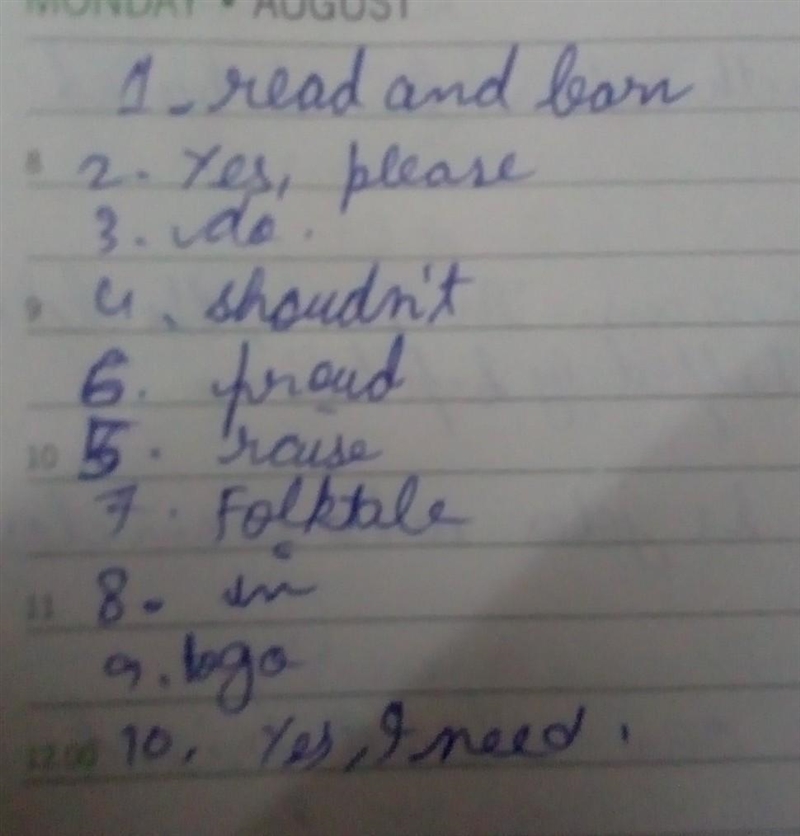 MONDAY • AUGUST
1 - read and learn
8 2. Yes, please
3. do.
9 4. shoudn't
6. proud
10 5. rouse
7. Folktale
11 8. in
9. logo
12.00 10. Yes, I need.